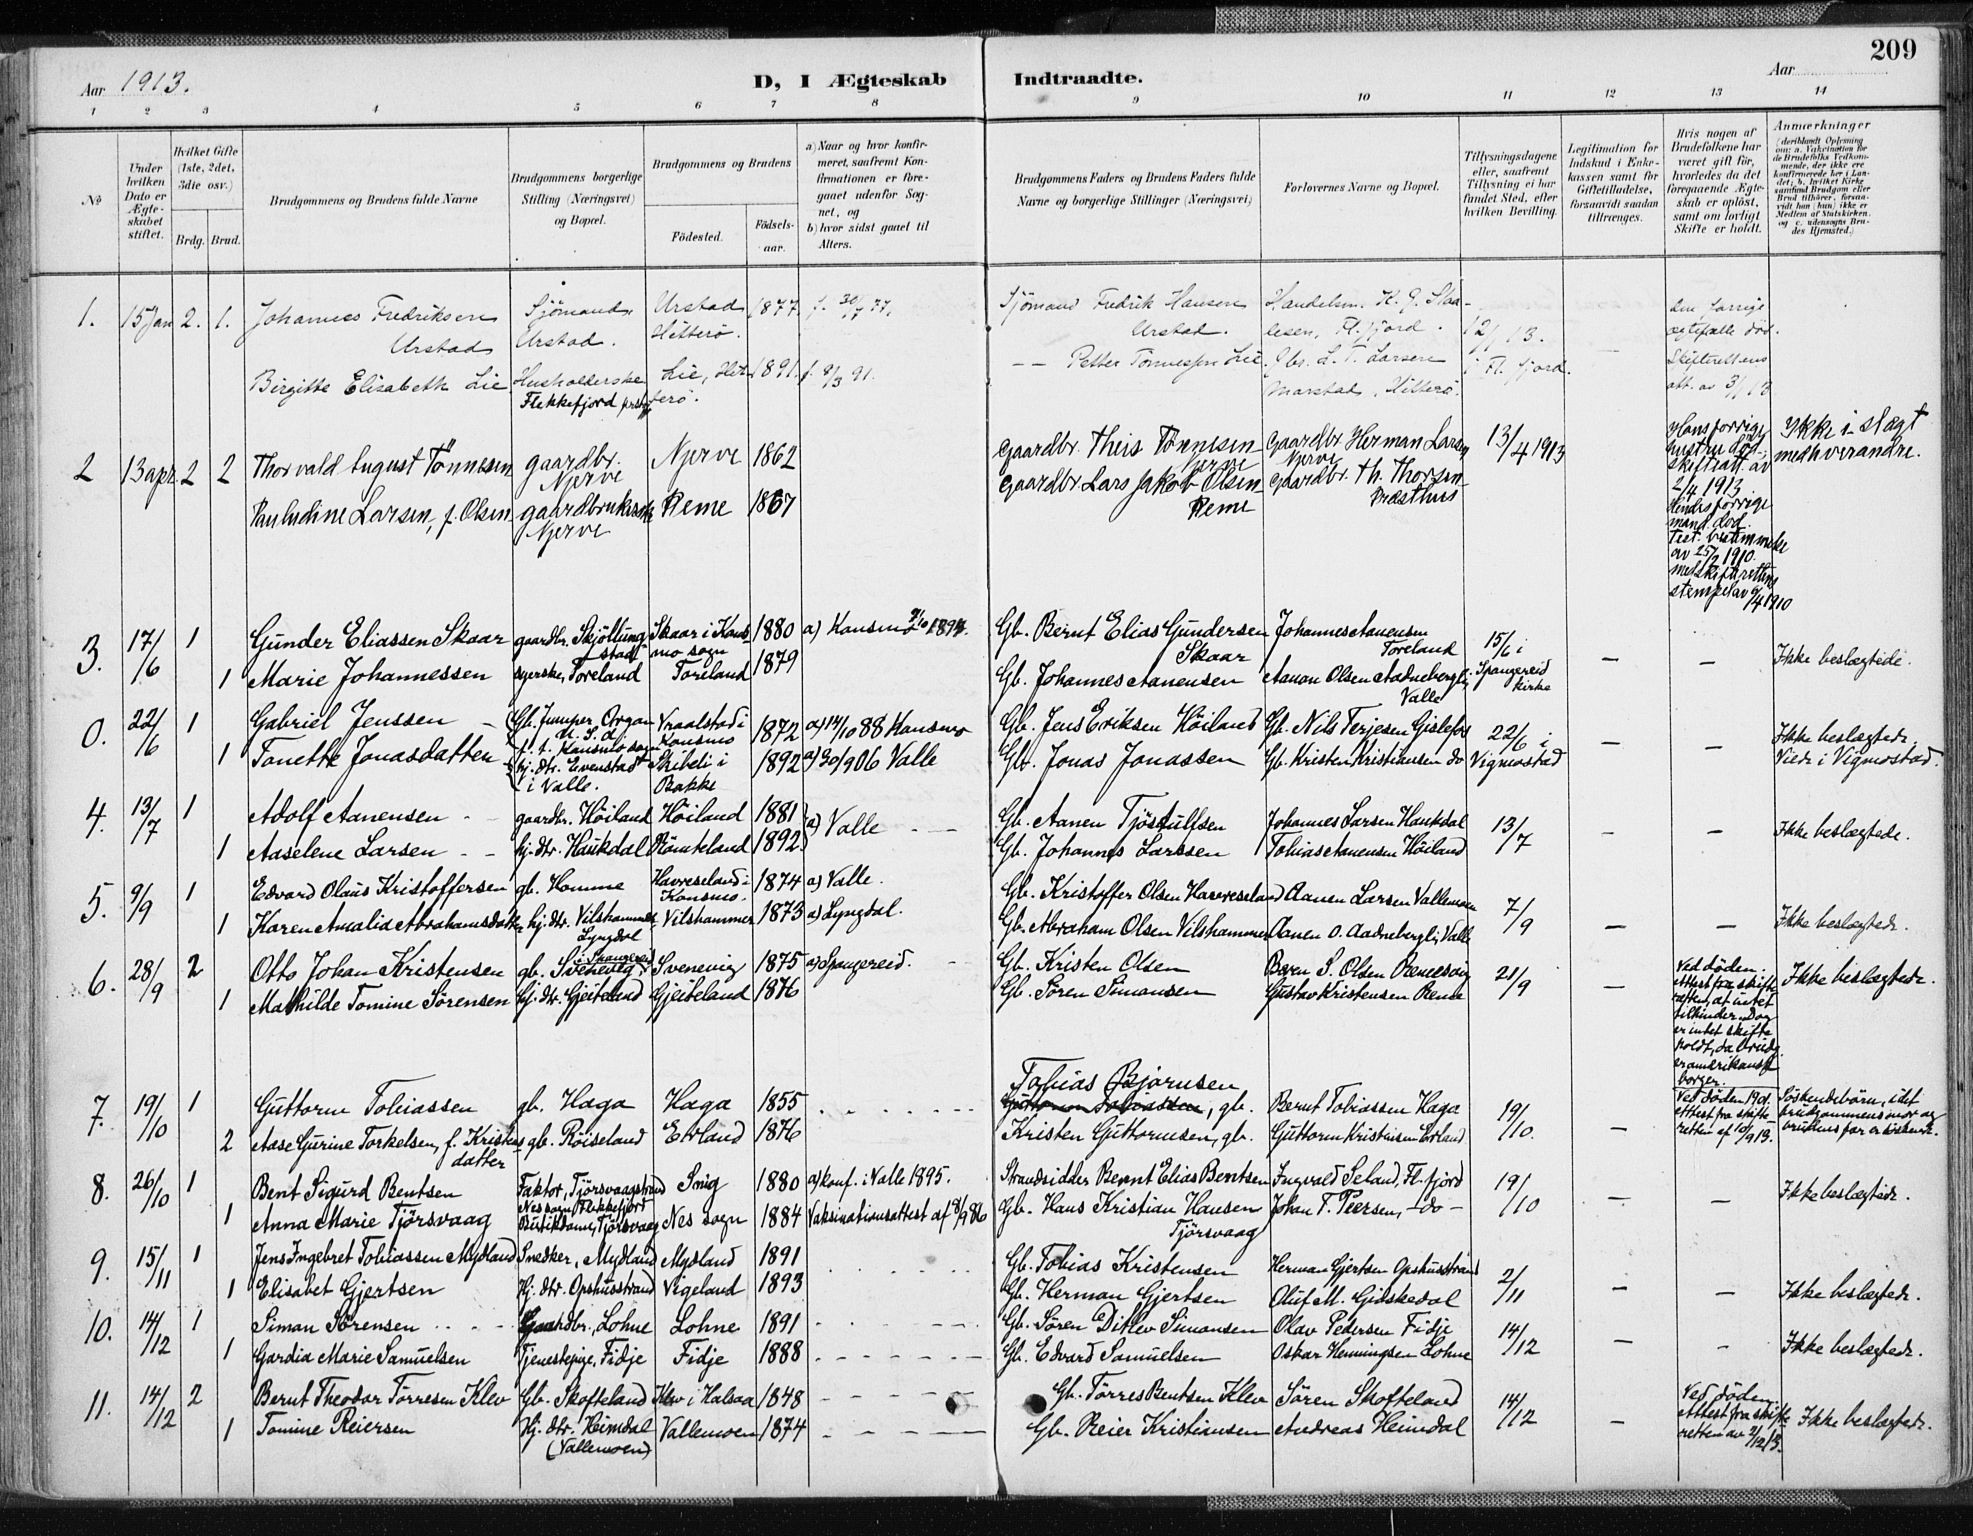 209
Aar 1913.
D, I Ægteskab Indtraadte.
Aar
1 2 3 4 5 6 7 8 9 10 11 12 13 14
№
Under hvilken Dato er Ægteskabet stiftet.
Hvilket Gifte (1ste, 2det, 3die osv.)
Brdg. Brud.
Brudgommens og Brudens fulde Navne
Brudgommens borgerlige Stilling (Næringsvei) og Bopæl.
Brudgommens og Brudens
Fødested. Fødselsaar.
a) Naar og hvor konfirmeret, saafremt Konfirmationen er foregaaet udenfor Sognet, og
b) hvor sidst gaaet til Alters.
Brudgommens Faders og Brudens Faders fulde Navne og borgerlige Stillinger (Næringsvei)
Forlovernes Navne og Bopæl.
Tillysningsdagene eller, saafremt Tillysning ei har fundet Sted, efter hvilken Bevilling.
Legitimation for Indskud i Enkekassen samt for Giftetilladelse, forsaavidt saadan tiltrænges.
Hvis nogen af Brudefolkene har været gift før, hvorledes da det foregaaende Ægteskab er opløst, samt om lovligt Skifte er holdt.
Anmærkninger (deriblandt Oplysning om: a. Vakcination for de Brudefolks Vedkommende, der ikke ere konfirmerede her i Landet; b. hvilket Kirkesamfund Brudgom eller Brud tilhører, forsaavidt han (hun) ikke er Medlem af Statskirken, og c. udensogns Brudes Hjemsted.)
1. 15 Jan 2. 1. Johannes Fredriksen Sjömand, Urstad 1877. f. 30/7 77. Sjömand Fredrik Hansen Handelsm. K. G. Staa-
Urstad Urstad. Hitterö. Urstad. lesen, Fl.fjord. 12/1 13. den forrige ægtefælle död.
Birgitte Elisabeth Lie Husholderske Lie, Hit- 1891. f. 8/3 91. — Petter Tönnesen Lie. Gbr. L. T. Larsen i Fl. fjord. Skifterettens
Flekkefjord terö. Marstad, Hitterö. att. av 3/1 13
2 13 apr. 2 2 Thorvald August Tönnesen gaardbr. Njerve 1862 gaardbr. Theis Tönnesen gaardbr Herman Larsen 13/4 1913 Hans forrige hustru död Ikke i slægt
Njerve Njerve Njerve skifteatt. av 2/4 1913. med hverandre.
Pauludine Larsen, f. Olsen gaardbrukerske Reme 1867 gaardbr. Lars Jakob Olsen gaardbr. Th. Thorsen Hendes forrige mand död.
Njerve Reme Præsthus Test. bestemmelse av 25/2 1910. med skifterettens stempel av 9/4 1910
3. 17/6 1 Gunder Eliassen Skaar gaardbr. Skjöllung- Skaar i Kons- 1880 a) Konsmo 9/10 1894. Gb. Bernt Elias Gundersen Johannes Aanensen 15/6 i
stad mo sogn Skaar Toreland
1 Marie Johannessen syerske, Toreland Toreland 1879 Gb. Johannes Aanensen Aanon Olsen Aadnebergli, Spangereid — — Ikke beslægtede.
Valle kirke
0. 22/6 1 Gabriel Jenssen Gb. Jumper, Oregon Vraalstad i 1872 a) 14/10 88 Konsmo Gb. Jens Eriksen Höiland Gb. Nils Terjesen Gislefos 22/6 i — — Ikke beslægtede.
U. S. d. f. t. Konsmo sogn Konsmo
1 Tonette Jonasdatter hj. dtr. Evenstad Skibeli i 1892 a) 30/9 06 Valle Gb. Jonas Jonassen Gb. Kristen Kristiansen do Vigmostad Viede i Vigmostad.
i Valle. Bakke
4. 13/7 1 Adolf Aanensen gaardbr. Höiland Höiland 1881 a) Valle Gb. Aanen Tjöstulfsen Johannes Larsen Haukdal 13/7 — — Ikke beslægtede.
1 Aaselene Larsen hj. dtr. Haukdal Römteland 1892 Gb. Johannes Larssen Tobias Aanensen Höiland
5. 9/9 1 Edvard Olaus Kristoffersen gb. Homme Havreseland i 1874 a) Valle. Gb. Kristoffer Olsen Havreseland Aanen Larsen Vallemoen 7/9
Konsmo.
1 Karen Amalia Abrahamsdatter hj. dtr. Vilshammer Vilshammer 1873 a) Lyngdal. Gb. Abraham Olsen Vilshammer Aanen O. Aadnebergli, Valle — — Ikke beslægtede.
Lyngdal
6. 28/9 2 Otto Johan Kristensen gb. Svenevig, i Spangereid Svenevig 1875 a) Spangereid. Gb. Kristen Olsen Beren S. Olsen Remesvig 21/9 — Ved döden. Ikke beslægtede.
1 Mathilde Tomine Sörensen hj. dtr. Gjeiteland Gjeiteland 1876 Gb. Sören Simonsen Gustav Kristensen Reme Attest fra skifteretten, at intet til hinder. Dog er intet skifte holdt, da brudg. er amerikansk borger.
7. 19/10 1 Guttorm Tobiassen gb. Haga Haga 1855 Tobias Bjornsen
Guttorm Tobiassen, gb. Bernt Tobiassen Haga 19/10. — Ved döden 1901. Söskendebörn, idet
2 Aase Gurine Torkelsen, f. Kristensdatter gb. Röiseland Erland 1876 Kristen Guttormsen, gb. Guttorm Kristensen Erland attest fra skifteretten af 10/9 13. brudgommens mor og brudens far er söskende.
8. 26/10 1 Bent Sigurd Bentsen Faktor, Tjörsvaagstrand Snig 1880 a) konf. i Valle 1895. Strandsidder Bernt Elias Bentsen Ingvald Seland, Fl.fjord 19/10 — — Ikke beslægtede.
Nes sogn, Flekkefjord
1 Anna Marie Tjörsvaag Butikdame, Tjörsvaag Nes sogn 1884 Vaksinationsattest af 8/9 86 Gb. Hans Kristian Hansen Johan T. Peersen, - do -
Tjörsvaag
9. 15/11 1 Jens Ingebret Tobiassen Mydland Snedker, Mydland Mydland 1891 Gb. Tobias Kristensen Herman Gjertsen Opshusstrand 2/11 — — Ikke beslægtede.
1 Elisabet Gjertsen Hj. dtr. Opshusstrand Vigeland 1893 Gb. Herman Gjertsen Oluf M. Gidskedal
10. 14/12 1 Siman Sörensen Gaardbr., Lohne Lohne 1891 Gb. Sören Ditlev Simonsen Olav Pedersen Fidje 14/12 — — Ikke beslægtede.
1 Gardia Marie Samuelsen Tjenestepige, Fidje Fidje 1888 Gb. Edvard Samuelsen Oskar Henningsen Lohne
11. 14/12 2 Bernt Theodor Törresen Klev Gb. Skofteland Klev i Halsaa 1848 Gb. Törres Bentsen Klev Sören Skofteland 14/12 — Ved döden Ikke beslægtede.
1 Tomine Reiersen Hj. dtr. Heimdal Vallemoen 1874 Gb. Reier Kristiansen Andreas Heimdal Attest fra skifteretten av 2/12 13.
(Vallemoen)